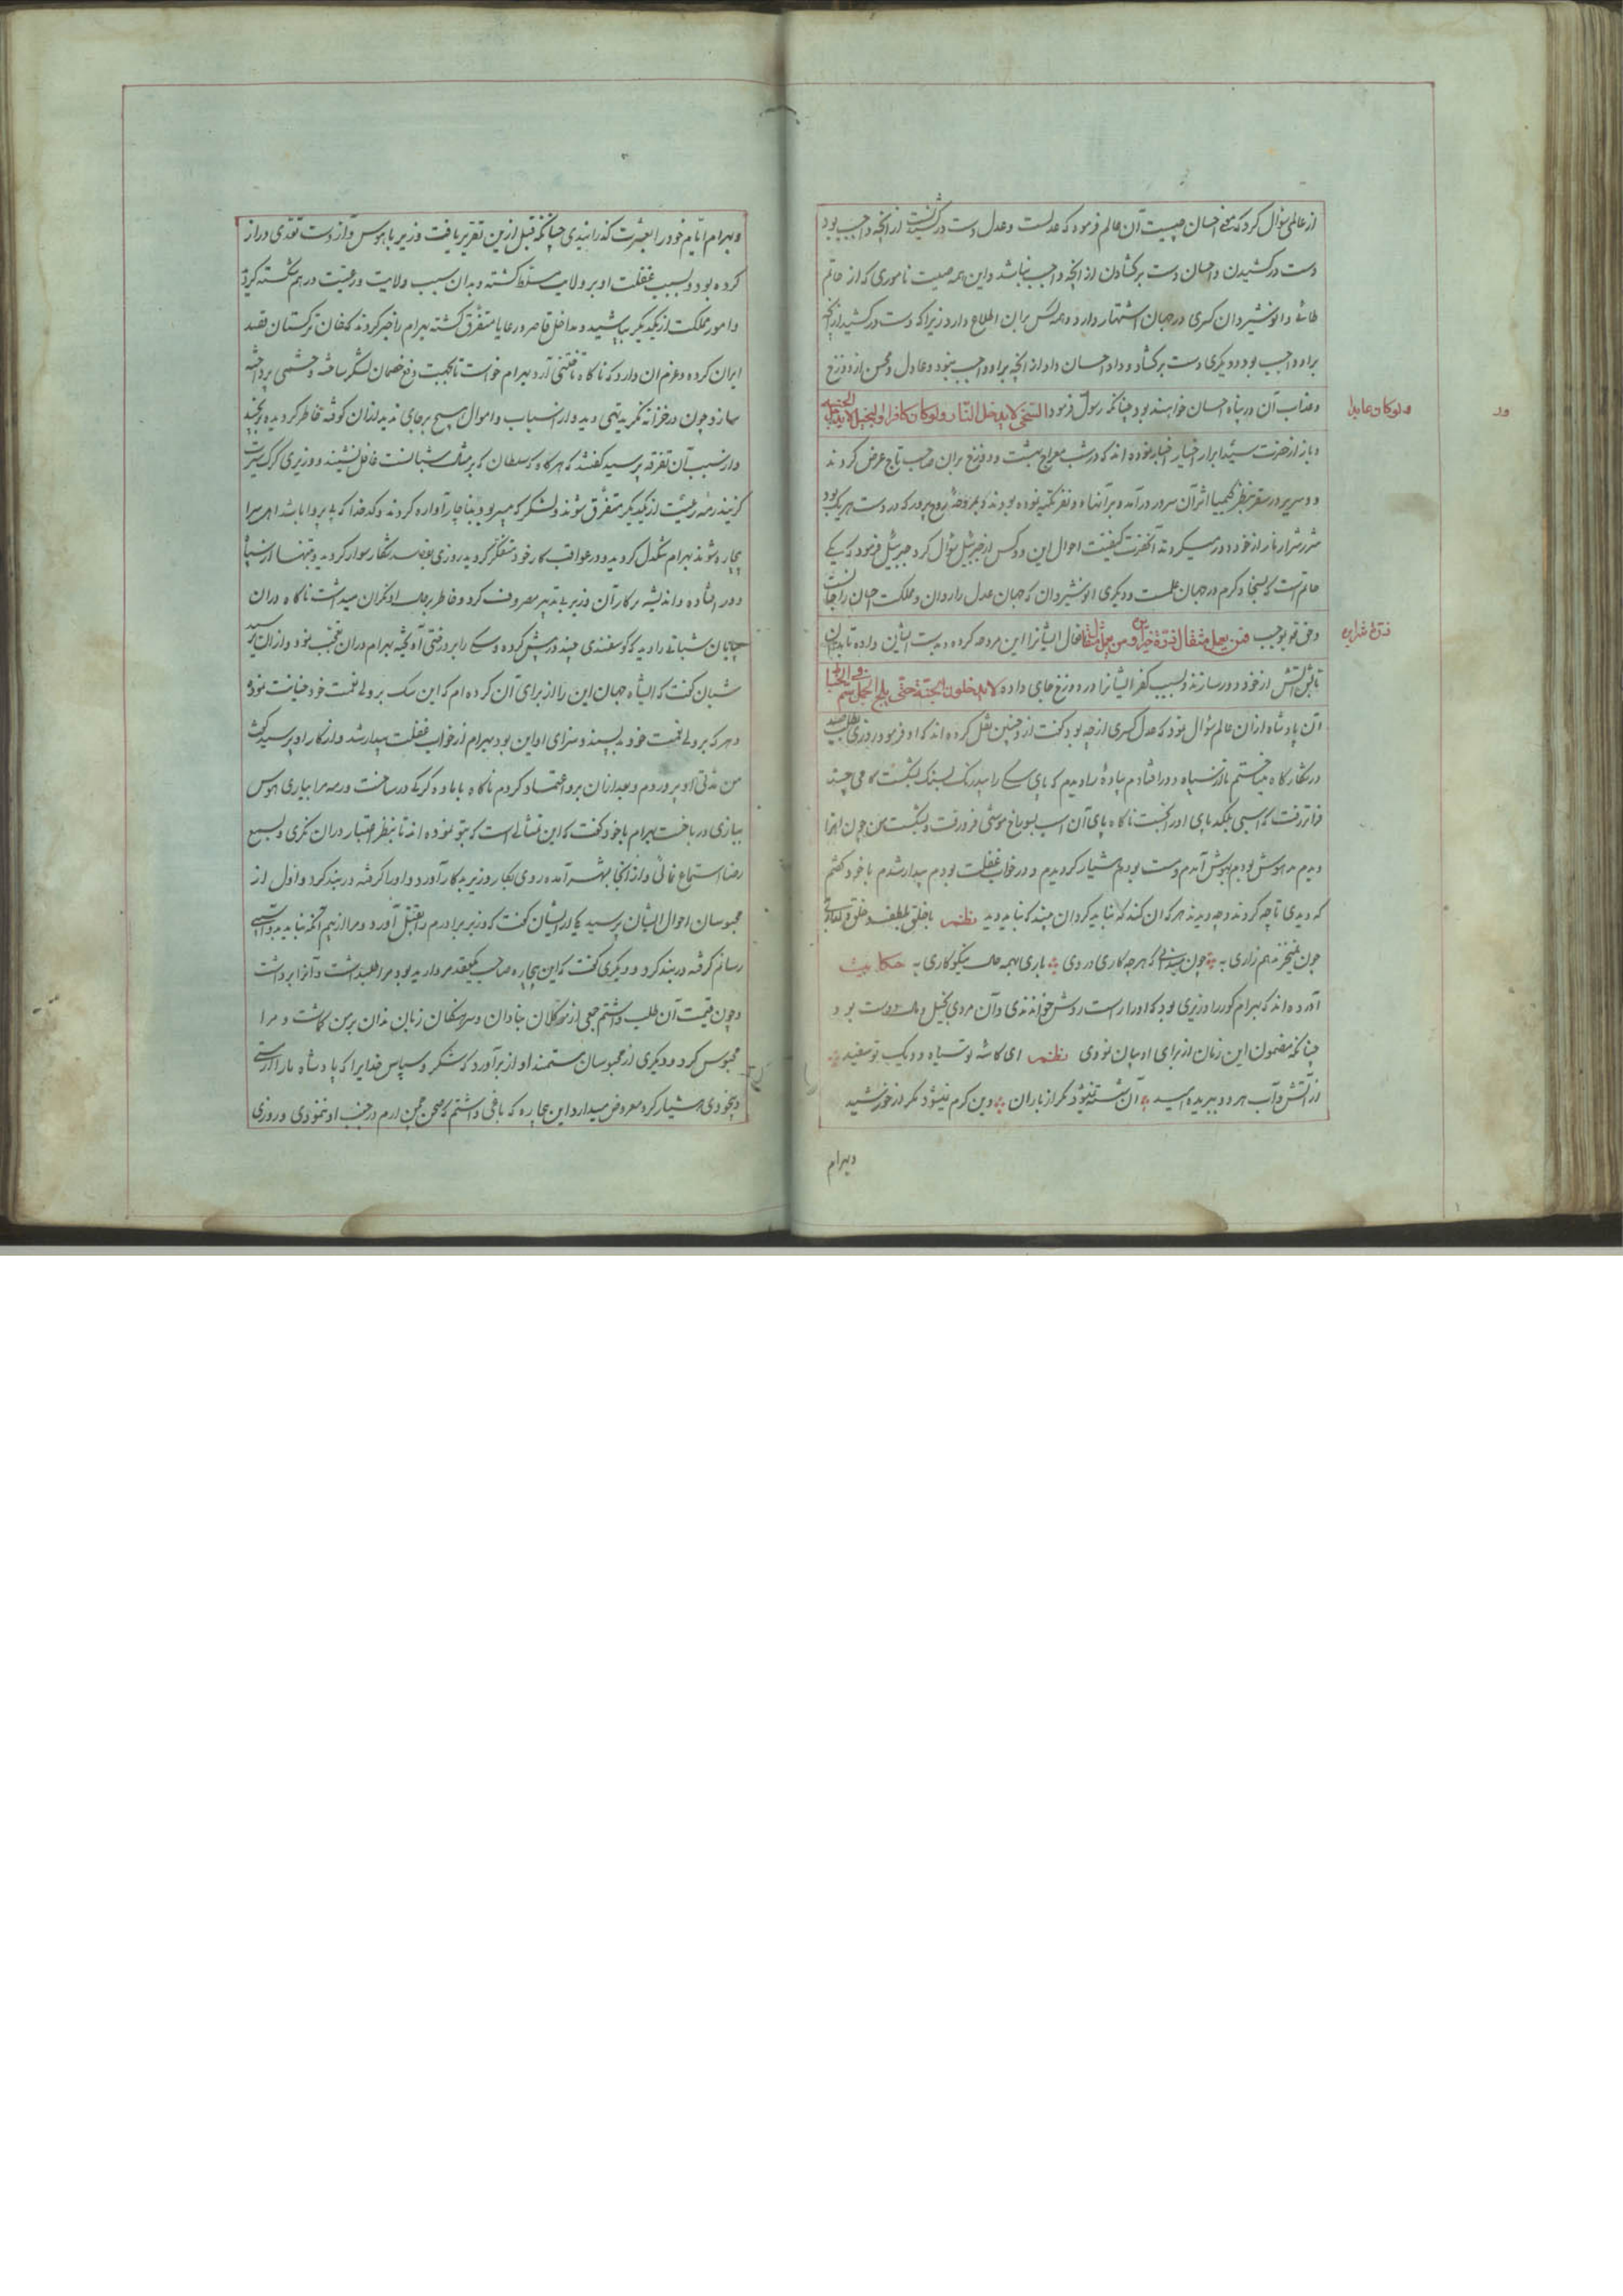 از عالمی سؤال کرد که معنی احسان چیست آن عالم فرمود که عدلست و عدل دست در کشیدنست از آنچه واجب بود
دست در کشیدن و احسان دست بر کشادن از آنچه واجب نباشد و این همه صیت ناموری که از حاتم
طائی و انوشیروان کسری در جهان اشتهار دارد و همه کس بر آن اطلاع دارد زیرا که دست در کشید از آنچه
بر او واجب بود و دیگری دست بر کشاد و داد احسان داد از آنچه بر او واجب نبود و عادل و محسن از دوزخ
و عذاب آن در پناه احسان خواهند بود چنانکه رسول فرمود السخی لا یدخل النار و لو کان کافرا و البخیل لا یدخل الجنة
و لو کان عابدا
و باز از حضرت سید ابرار اخیار اخبار نموده اند که در شب معراج بهشت و دوزخ بر آن صاحب تاج عرض کردند
دو سریر در سقر بنظر کیمیا اثر آن سرور در آمد و بر آنها دو نفر تکیه نموده بودند و مروحه روح پرور که در دست هر یک بود
شرر شرار نار از خود دور میکردند آنحضرت کیفیت احوال این دو کس از جبرئیل سؤال کرد جبرئیل فرمود که یکی
حاتم است که بسخا و کرم در جهان علمست و دیگری انوشیروان که جهان عدل را روان و مملکت احسان را جانست
و حق تعالی بموجب فمن یعمل مثقال ذرة خیرا یره و من یعمل مثقال ایشانرا این مروحه کرده بدست ایشان داده تا بدان
ذرة شرا یره
تابش آتش از خود دور سازند و بسبب کفر ایشانرا در دوزخ جای داده لا یدخلون الجنة حتی یلج الجمل فی سم الخیاط
آن پادشاه از آن عالم سؤال نمود که عدل کسری از چه بود گفت از و چنین نقل کرده اند که او فرمود روزی بطلب صید
در شکار گاه میتاختم تا از سپاه دور افتادم پیاده را دیدم که پای سگی را بیدرنگ بسنگ بشکست گامی چند
فراتر رفت که اسبی لگد بپای او زد ناگاه پای آن اسب بسوراخ موشی فرو رفت و بشکست من چون این را
دیدم مدهوش بودم بهوش آمدم و مست بودم هشیار گردیدم و در خواب غفلت بودم بیدار شدم با خود گفتم
که دیدی تا چه کردند و چه دیدند هر که آن کند که نباید کردن آن بیند که نباید دید نظم با خلق بلطف و خلق
به چون میدانی که هر چه کاری دروی باری بهمه حال نیکو کاری به حکایت
آورده اند که بهرام گور را وزیری بود که او را راست روش خواندندی و آن مردی بخیل و مال دوست بود
چنانکه مضمون این زمان از برای او بیان نمودی نظم ای کاسه تو سیاه و دیگ تو سفید
از آتش و آب هر دو ببریده امید آن شسته نشود مگر از باران وین گرم نشود مگر از خورشید
و بهرام
و بهرام ایام خود را بعشرت گذرانیدی چنانکه قبل ازین تقریر یافت وزیر با هوس و آز دست تعدی دراز
کرده بود و بسبب غفلت او بر ولایت مسلط گشته و بدان سبب ولایت و رعیت در هم شکسته گردید
و امور مملکت از یکدیگر بپاشید و مداخل قاصر و رعایا متفرق گشته بهرام را خبر کردند که خان ترکستان قصد
ایران کرده و عزم آن دارد که ناگاه تاختنی آرد بهرام خواست تا بجهت دفع خصمان لشکر ساخته و حشمی پرداخته
سازد چون در خزانه نگریست تهی دید و از اسباب و اموال هیچ بر جای ندید از آن کوفته خاطر گردیده برنجید
و از سبب آن تفرقه پرسید گفتند که هر گاه که سلطان که بر مثال شبانست غافل نشیند و وزیری گرگ سیرت
گزیند رمه رعیت از یکدیگر متفرق شوند و لشکر که بناچار آواره گردند و کدخدا که بی پروا باشد اهل سرا
بیچاره شوند بهرام تنگدل گردید و در عواقب کار خود متفکر گردید روزی بقصد شکار سوار گردید و تنها از سپاه
دور افتاده و اندیشه بر کار آن وزیر بی تدبیر مصروف کرد و خاطر بر حال او نگران میداشت ناگاه در آن
بیابان شبانی را دید که گوسفندی چند در پیش کرده و سگی را بر درختی آویخته بهرام در آن تعجب نمود و از آن پرسید
شبان گفت که ای شاه جهان این را از برای آن کرده ام که این سگ بر ولی نعمت خود خیانت نموده
و هر که بر ولی نعمت خود بد پسندد سزای او این بود بهرام از خواب غفلت بیدار شد و از کار او پرسید گفت
من مدتی او را پروردم و بعد از آن بر او اعتماد کردم ناگاه با ماده گرگی در ساخت و رمه مرا بیاری هوس
ببازی در باخت بهرام با خود گفت که این تمثالی است که بتو نموده اند تا بنظر اعتبار در آن نگری و بسمع
رضا استماع نمائی و از آنجا بشهر آمده روی بکار وزیر بدکار آورد و او را گرفته در بند کرد و اول از
محبوسان احوال ایشان پرسید یکی از ایشان گفت که وزیر برادرم را بقتل آورد و مرا از بیم آنکه نباید
رسانم گرفته در بند کرد و دیگری گفت که این بیچاره صاحب یکعقد مروارید بودم مرا طلب داشت و آنرا برداشت
و چون قیمت آن طلب داشتم جمعی از موکلان و سرهنگان زبان بر من گماشت و مرا
محبوس کرد و دیگری از محبوسان مستمند آواز بر آورد که شکر و سپاس خدایرا که پادشاه ما را از مستی
و بیخودی هشیار کرد معروض میدارد این بیچاره که باغی داشتم که صحن چمن ارم در جنب او ننمودی و روزی